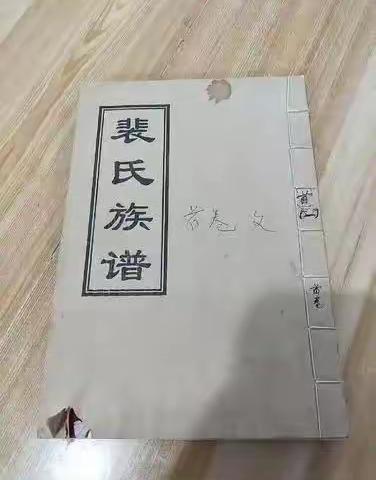 裴氏族谱
首卷 文
首卷